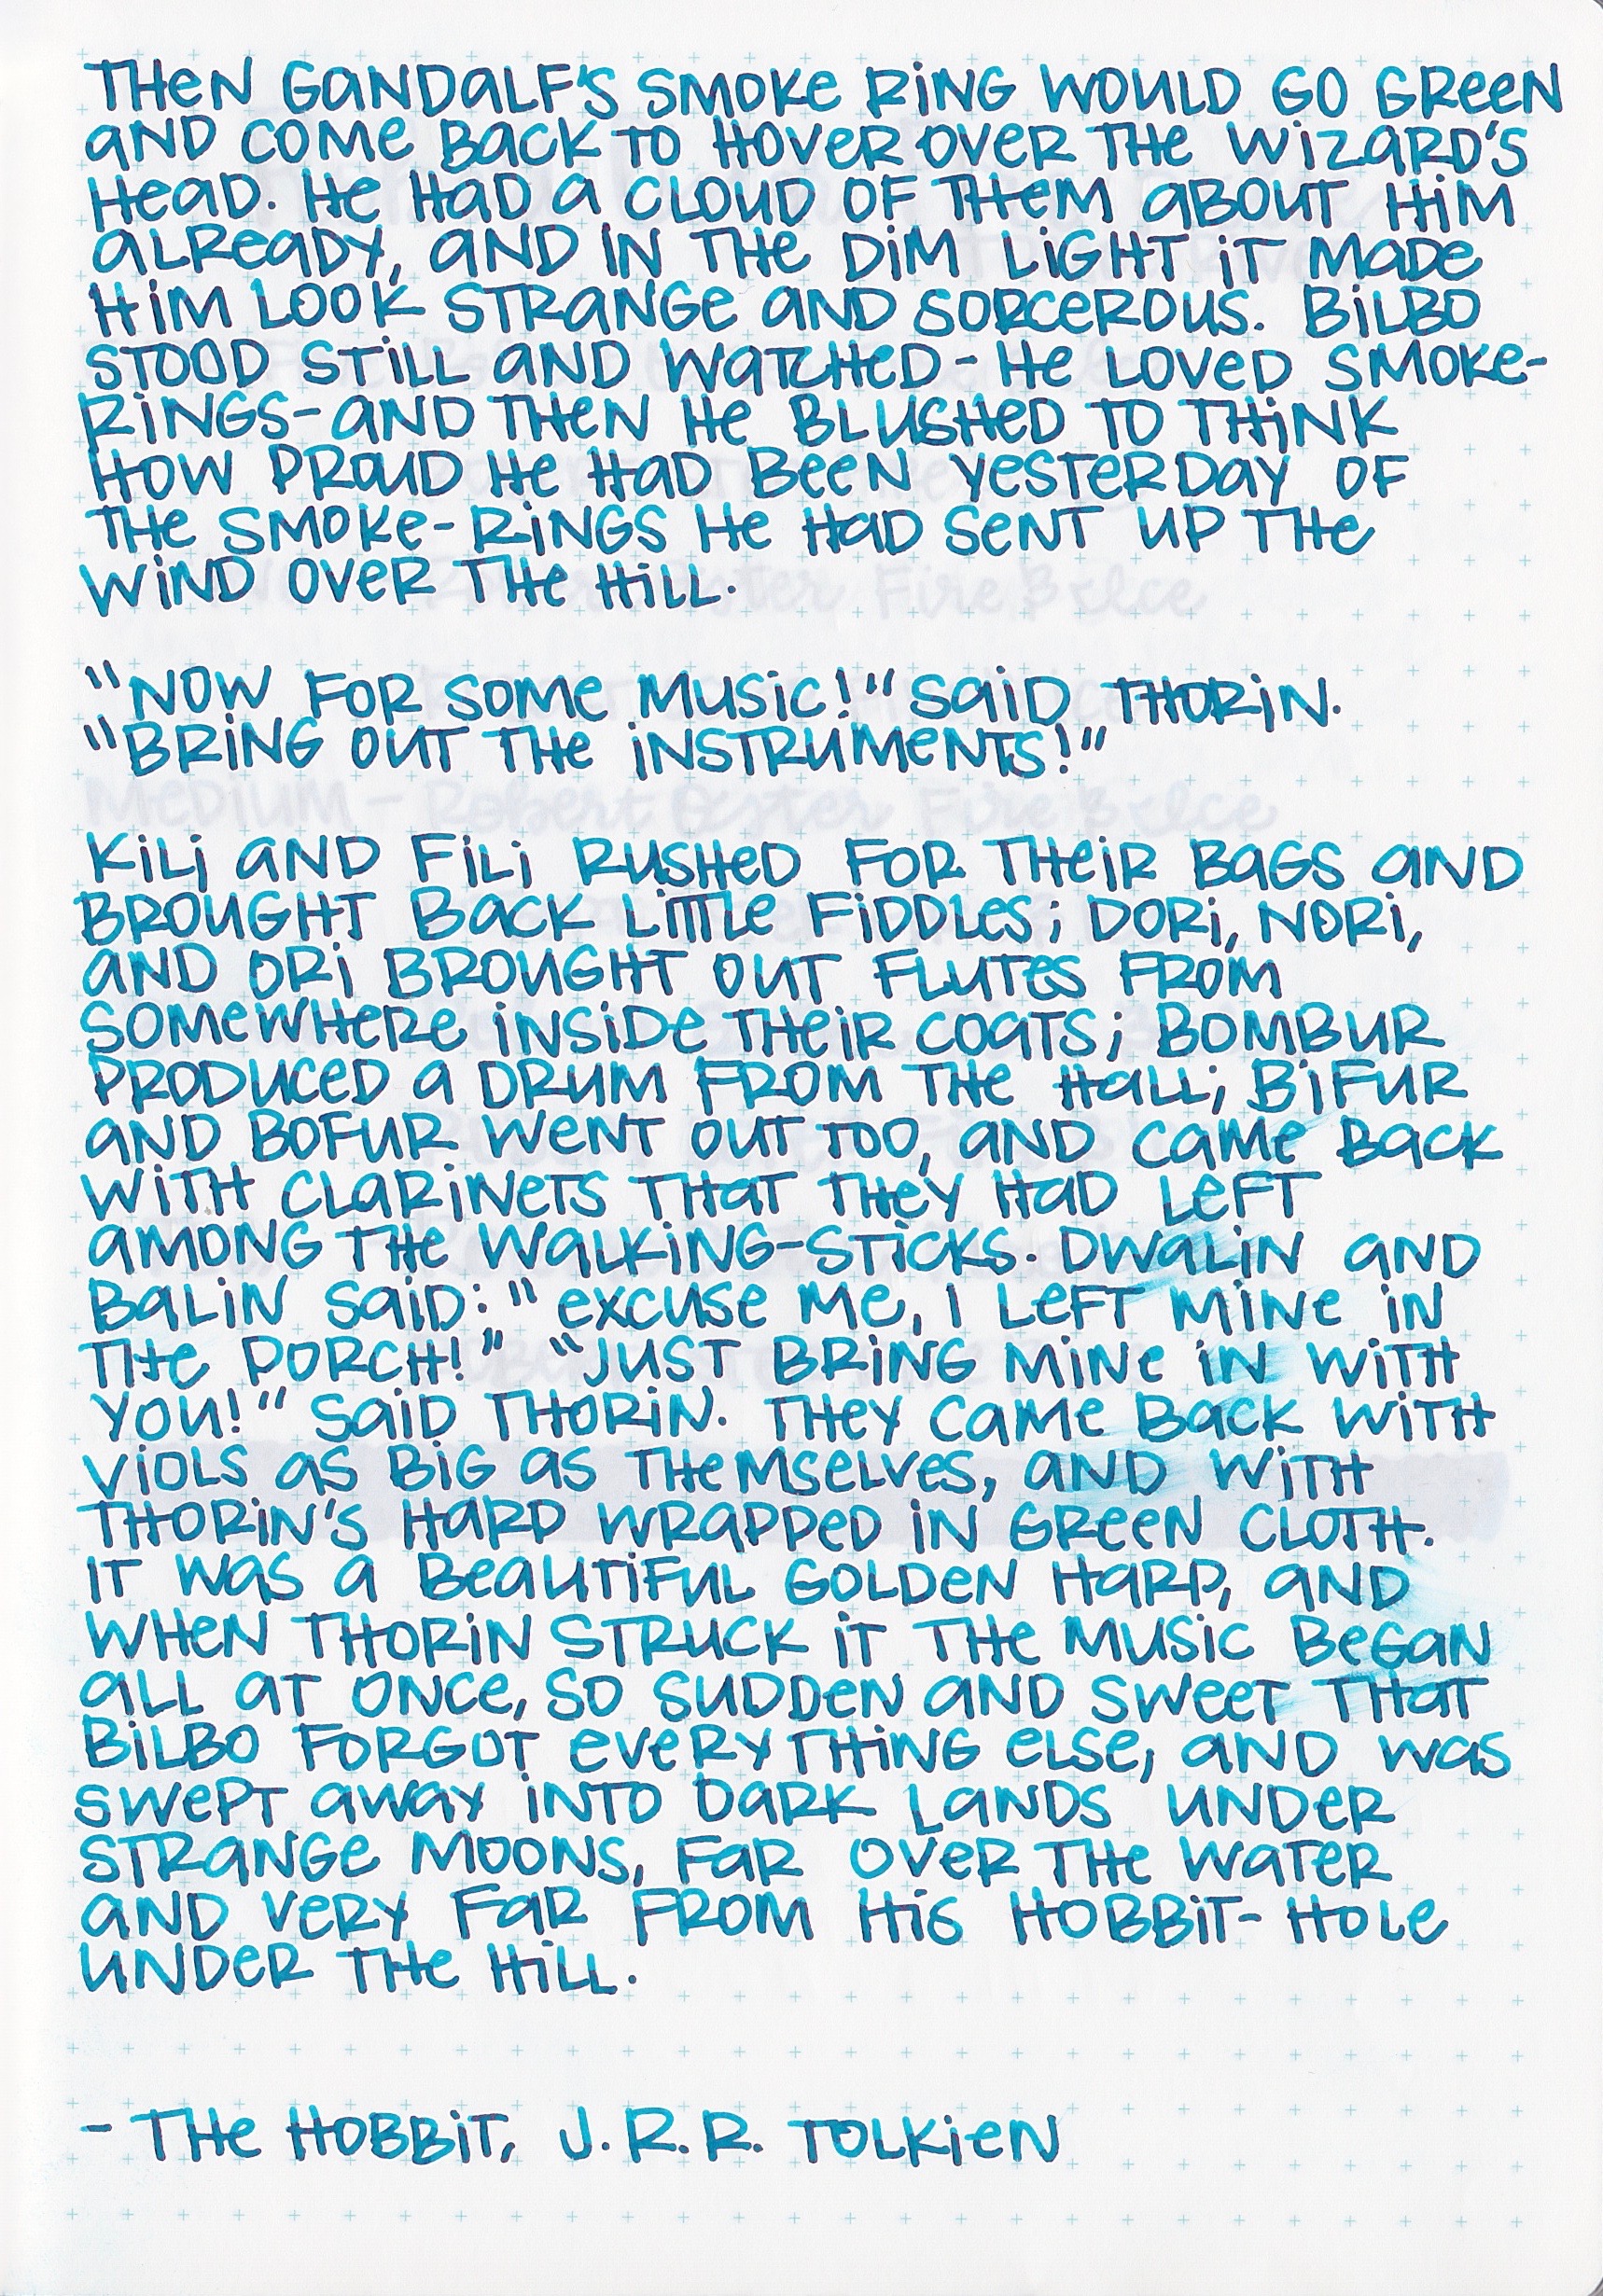 THEN GANDALF'S SMOKE RING WOULD GO GREEN
AND COME BACK TO HOVER OVER THE WIZARD'S
HEAD. HE HAD A CLOUD OF THEM ABOUT HIM
ALREADY, AND IN THE DIM LIGHT IT MADE
HIM LOOK STRANGE AND SORCEROUS. BILBO
STOOD STILL AND WATCHED - HE LOVED SMOKE-
RINGS - AND THEN HE BLUSHED TO THINK
HOW PROUD HE HAD BEEN YESTERDAY OF
THE SMOKE-RINGS HE HAD SENT UP THE
WIND OVER THE HILL.
"NOW FOR SOME MUSIC!" SAID THORIN.
"BRING OUT THE INSTRUMENTS!"
MEDIUM - Robert Oster Fire & Ice
KILI AND FILI RUSHED FOR THEIR BAGS AND
BROUGHT BACK LITTLE FIDDLES; DORI, NORI,
AND ORI BROUGHT OUT FLUTES FROM
SOMEWHERE INSIDE THEIR COATS; BOMBUR
PRODUCED A DRUM FROM THE HALL; BIFUR
AND BOFUR WENT OUT TOO, AND CAME BACK
WITH CLARINETS THAT THEY HAD LEFT
AMONG THE WALKING-STICKS. DWALIN AND
BALIN SAID: "EXCUSE ME, I LEFT MINE IN
THE PORCH!" "JUST BRING MINE IN WITH
YOU!" SAID THORIN. THEY CAME BACK WITH
VIOLS AS BIG AS THEMSELVES, AND WITH
THORIN'S HARP WRAPPED IN GREEN CLOTH.
IT WAS A BEAUTIFUL GOLDEN HARP, AND
WHEN THORIN STRUCK IT THE MUSIC BEGAN
ALL AT ONCE, SO SUDDEN AND SWEET THAT
BILBO FORGOT EVERYTHING ELSE, AND WAS
SWEPT AWAY INTO DARK LANDS UNDER
STRANGE MOONS, FAR OVER THE WATER
AND VERY FAR FROM HIS HOBBIT-HOLE
UNDER THE HILL.
- THE HOBBIT, J.R.R. TOLKIEN